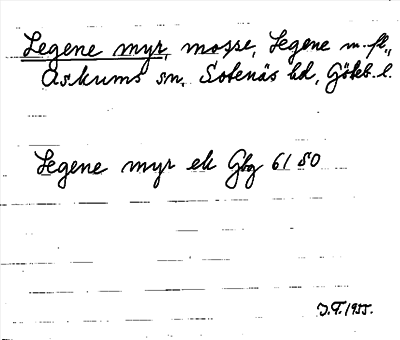 Legene myr, mosse, Legene m. fl.,
Askums sn, Sotenäs hd, Göteb. l.
Legene myr ek Gbg 61 SO
J.F. 1955.